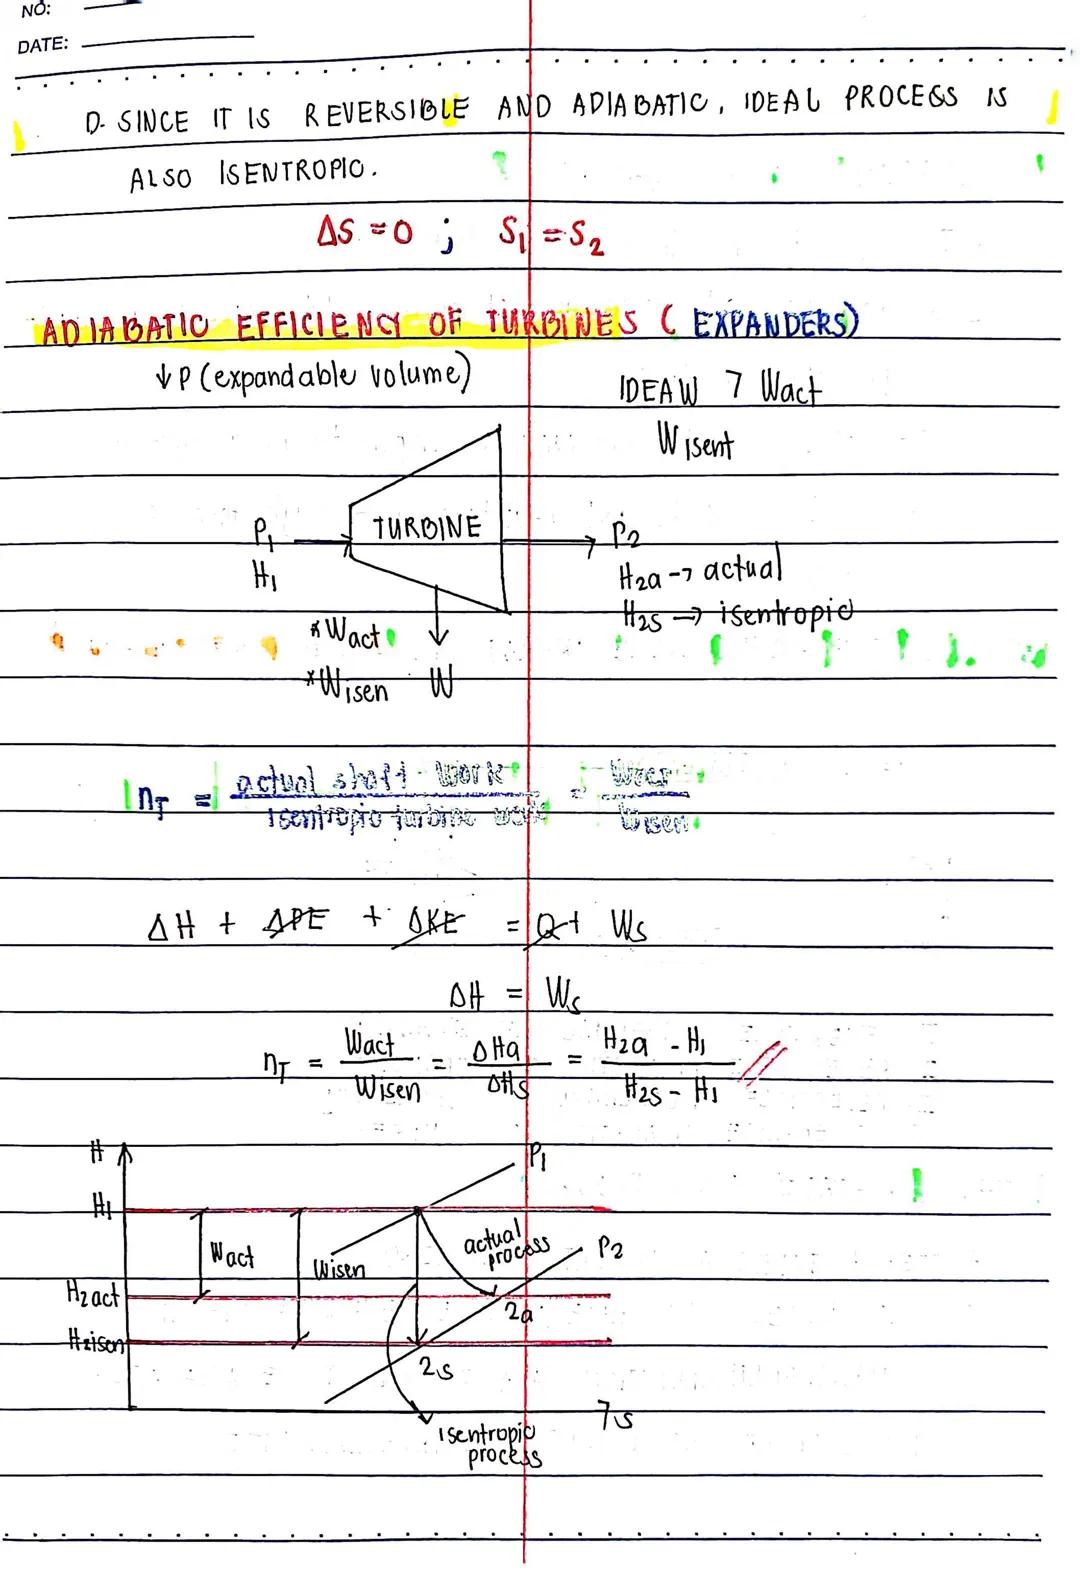 NO:
DATE:
D. SINCE IT IS REVERSIBLE AND ADIABATIC, IDEAL PROCESS IS
ALSO ISENTROPIC.
ΔS = 0 ; S₁ = S₂
ADIABATIC EFFICIENCY OF TURBINES ( EXPANDERS)
↓P (expandable volume)
IDEAW > Wact
Wisent
TURBINE
P₁
H₁
P₂
H₂a → actual
H₂s → isentropic
*Wact
*Wisen W
nT = actual shaft work / isentropic turbine work = / Wisen
ΔH + ΔPE + ΔKE = Q + Ws
ΔH = Ws
nT = Wact / Wisen = ΔHa / ΔHs = H₂a - H₁ / H₂s - H₁
H
P₁
H₁
Wact
Wisen
actual process
P₂
H₂act
2a
H₂isen
2s
s
isentropic
process